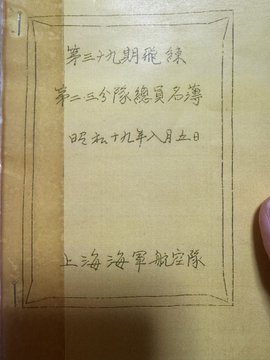 第三十九期飛練
第二・三分隊總員名簿
昭和十九年八月五日
上海海軍航空隊